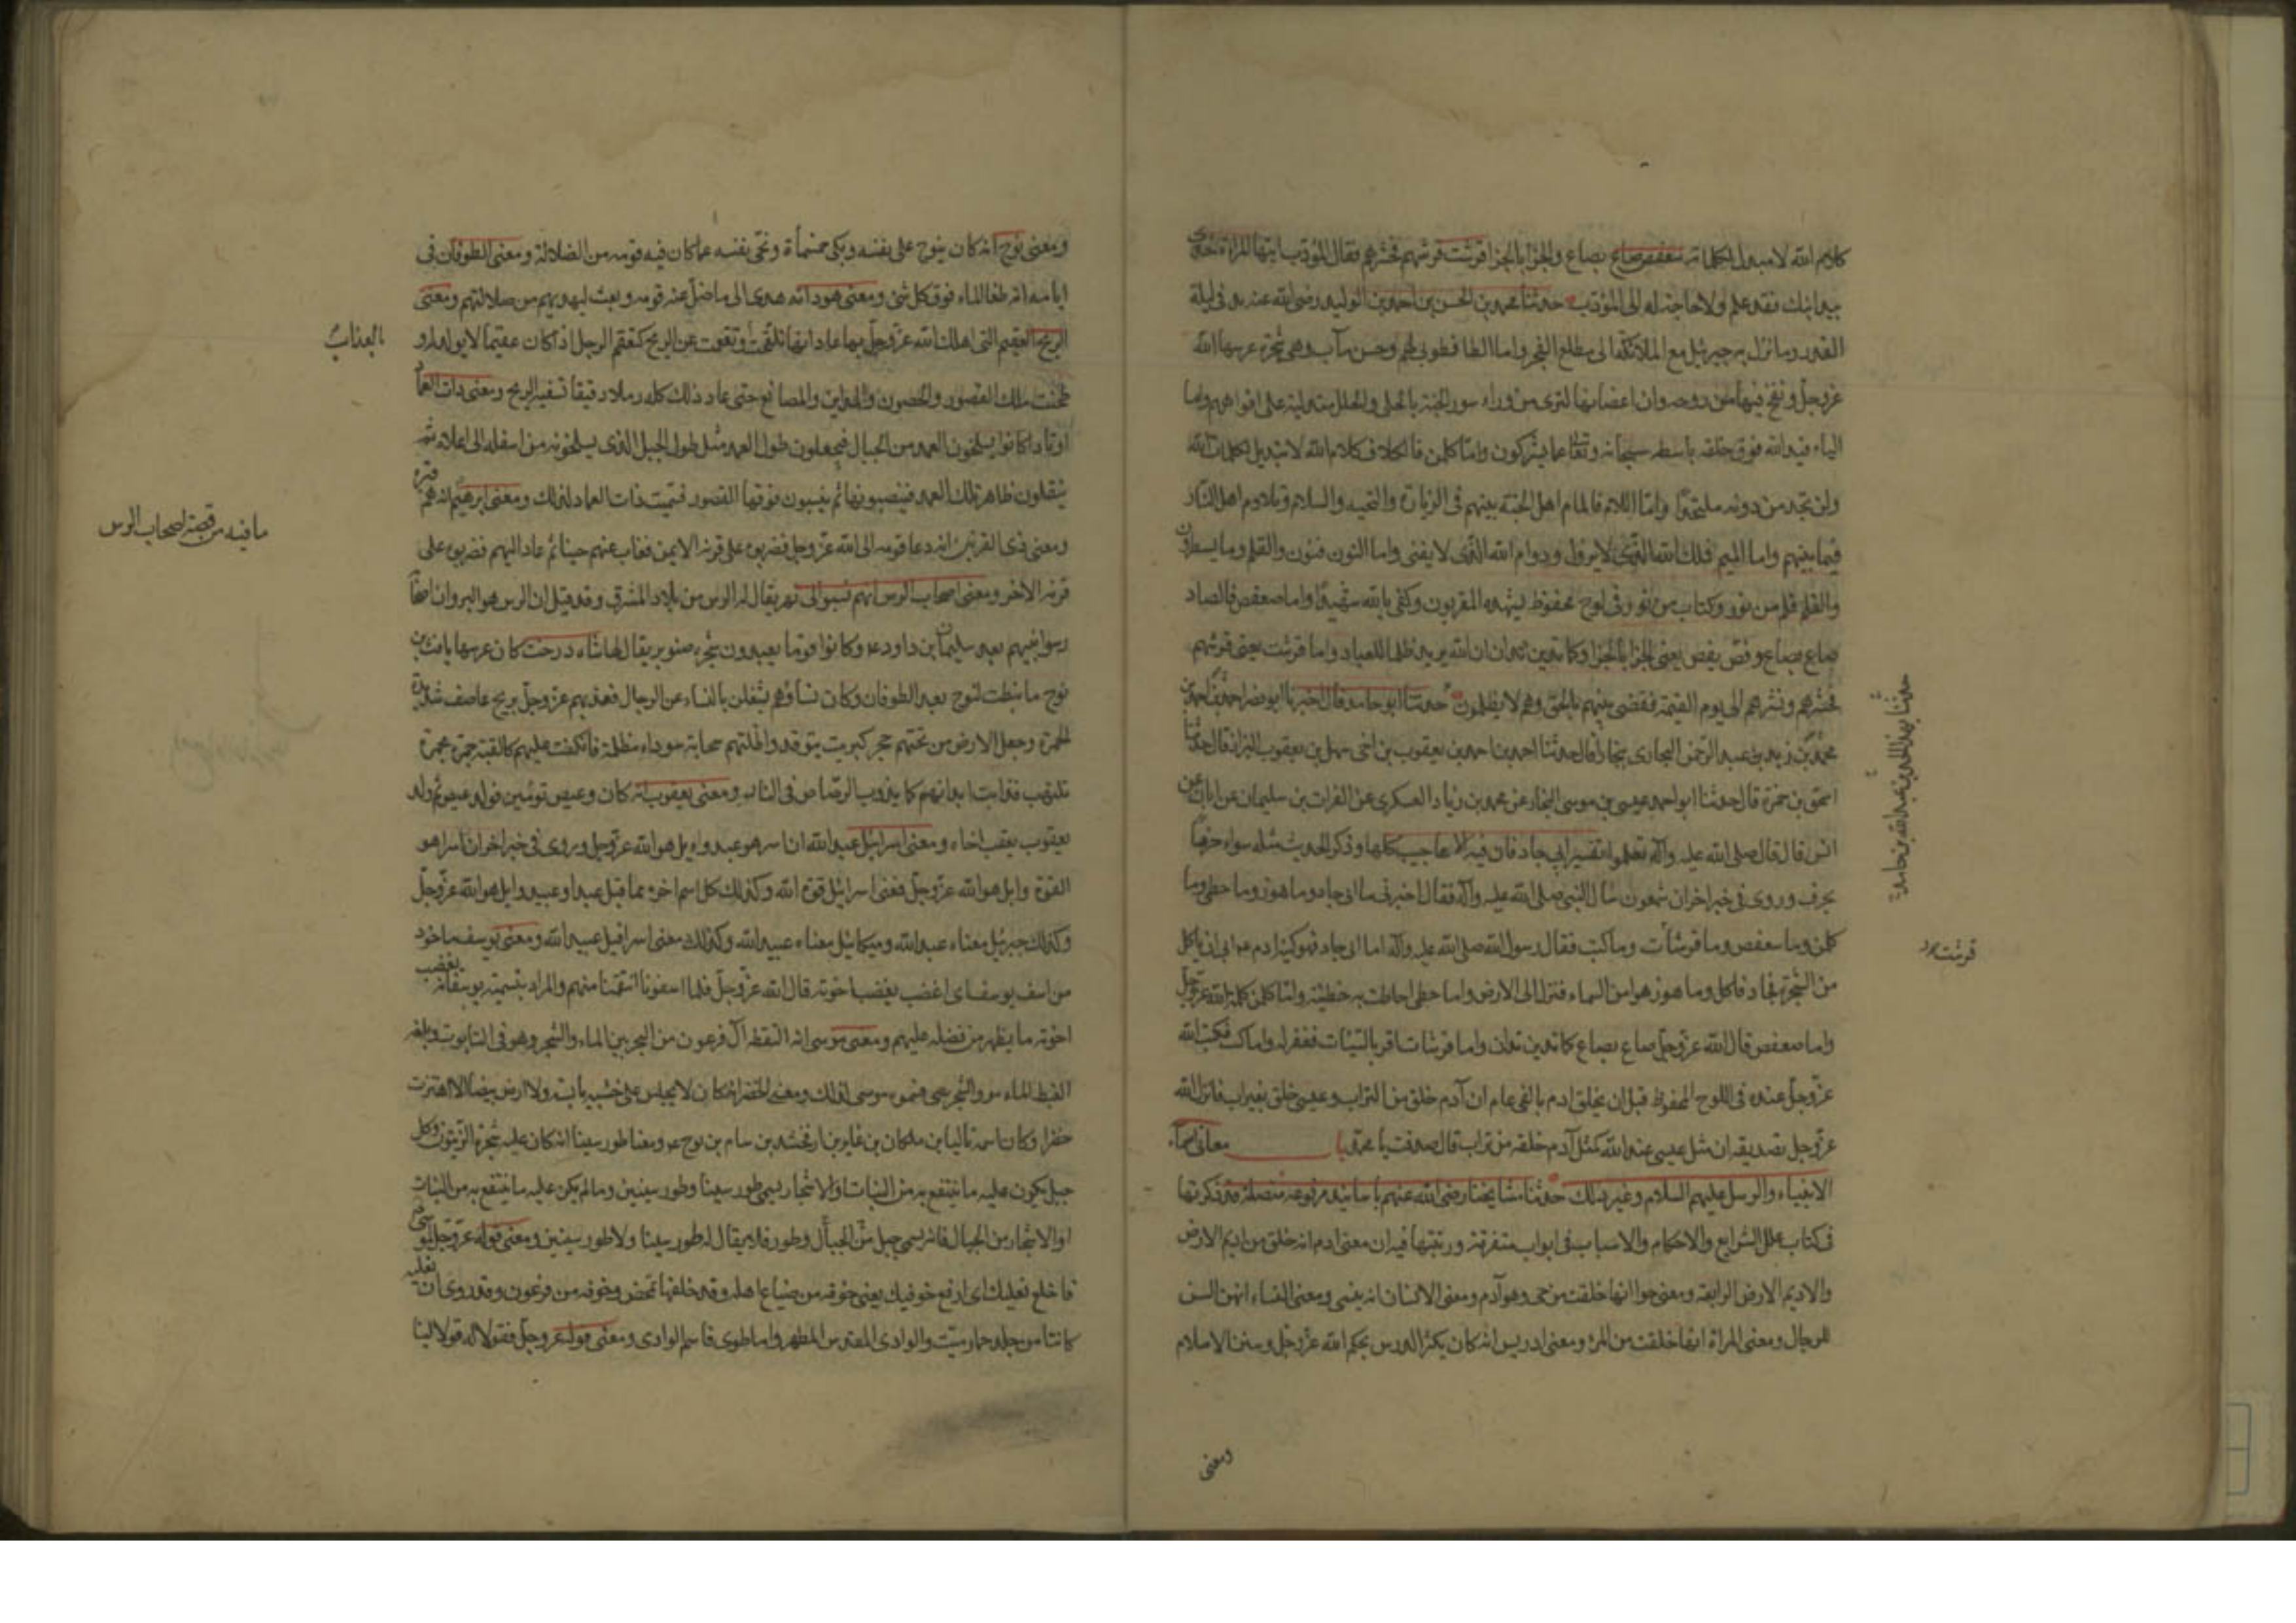 كلام الله لا مبدل لكلماته سعفص صاع بصاع والجزا بالجزا قرشت قرشهم فحشرهم فقال المؤدب ايتها المراة خذى
بيد ابنك فقد علم ولا حاجة له الى المؤدب حدثنا محمد بن الحسن بن احمد بن الوليد رضى الله عنه
القدر وما نزل به جبرئيل مع الملائكة الى مطلع الفجر واما الطا فطوبى لهم وحسن مآب وهى شجرة غرسها الله
عز وجل ونفخ فيها من روحه وان اغصانها لترى من وراء سور الجنة بالحلى والحلل متدلية على افواههم واما
الياء فيد الله فوق خلقه باسطه سبحانه وتعالى عما يشركون واما كلمن فالكاف كلام الله لا تبديل لكلمات الله
ولن تجد من دونه ملتحدا واما اللام فالمام اهل الجنة بينهم فى الزيارة والتحية والسلام وتلاوم اهل النار
فيما بينهم واما الميم فملك الله الذى لا يزول ودوام الله الذى لا يفنى واما النون فنون والقلم وما يسطرون
والقلم قلم من نور وكتاب من نور فى لوح محفوظ يشهده المقربون وكفى بالله شهيدا واما صعفص فالصاد
صاع بصاع وفص بفص يعنى الجزا بالجزا وكما تدين تدان ان الله لا يريد ظلما للعباد واما قرشت يعنى قرشهم
فحشرهم ونشرهم الى يوم القيمة فقضى بينهم بالحق وهم لا يظلمون حدثنا ابو حامد قال اخبرنا ابو نصر احمد بن
محمد بن زيد بن عبد الرحمن البخارى ببخارا قال حدثنا احمد بن يعقوب بن اخى سهل بن يعقوب البزاز قال حدثنا
اسحق بن حمزة قال حدثنا ابو احمد عيسى بن موسى النجار عن محمد بن زياد السكرى عن الفرات بن سليمان عن ابان عن
انس قال قال صلى الله عليه وآله تعلموا تفسير ابى جاد فان فيه الاعاجيب كلها وذكر الحديث مثله سواء حرفا
بحرف وروى فى خبر اخر ان شمعون سال النبى صلى الله عليه وآله فقال اخبرنى ما ابى جاد وما هوز وما حطى وما
كلمن وما سعفص وما قرشات وما كتب فقال رسول الله صلى الله عليه وآله اما ابى جاد فهو كنية ادم ابى ان ياكل
من الشجرة فجاد فاكل وما هوز هوا من السماء فنزل الى الارض واما حطى احاطت به خطيئته واما كلمن كلمة الله عز وجل
واما صعفص قال الله عز وجل صاع بصاع كما تدين تدان واما قرشات اقر بالسيئات فغفر له واما كتب فكتب الله
عز وجل عنده فى اللوح المحفوظ قبل ان يخلق ادم بالفى عام ان آدم خلق من التراب وعيسى خلق بغير اب فانزل الله
عز وجل تصديقه ان مثل عيسى عند الله كمثل آدم خلقه من تراب قال صدقت يا محمد باب معانى اسماء
الانبياء والرسل عليهم السلام وغير ذلك حدثنا مشايخنا رضى الله عنهم باسانيد مرفوعة متصلة قد ذكرتها
فى كتاب علل الشرايع والاحكام والاسباب فى ابواب متفرقة ورتبتها فيه ان معنى ادم انه خلق من اديم الارض
والاديم الارض الرابعة ومعنى حوا انها خلقت من حى وهو آدم ومعنى الانسان انه ينسى ومعنى النساء انهن انس
للرجال ومعنى المراة انها خلقت من المرء ومعنى ادريس انه كان يكثر الدرس بحكم الله عز وجل وسنن الاسلام
ومعنى
قرشت
ومعنى نوح انه كان ينوح على نفسه وبكى خمسمأة ونحى نفسه عما كان فيه قومه من الضلالة ومعنى الطوفان فى
ايامه انه طغا الماء فوق كل شئ ومعنى هود انه هدى الى ما ضل عنه قومه وبعث ليهديهم من ضلالتهم ومعنى
الريح العقيم التى اهلك الله عز وجل بها عاد انها تلقحت بالعذاب وتعقمت عن الريح كتعقم الرجل اذا كان عقيما لا يولد له و
طحنت تلك القصور والحصون والمداين والمصانع حتى عاد ذلك كله رملا دقيقا تسفيه الريح ومعنى ذات العماد
اوتادا كانوا يسلخون العمد من الجبال فيجعلون طول العمد مثل طول الجبل الذى يسلخونه من اسفله الى اعلاه ثم
ينقلون تلك العمد فينصبونها ثم يبنون فوقها القصور فسميت ذات العماد لذلك ومعنى ابرهيم انه هم فبر
ومعنى ذى القرنين انه دعا قومه الى الله عز وجل فضربوه على قرنه الايمن فغاب عنهم حينا ثم عاد اليهم فضربوه على
قرنه الاخر ومعنى اصحاب الرس انهم نسبوا الى نهر يقال له الرس من بلاد المشرق وقد قيل ان الرس هو البئر وان اصحابه
رسوا نبيهم بعد سليمان بن داود وكانوا قوما يعبدون شجرة صنوبر يقال لها شاه درخت كان غرسها يافث بن
نوح ما نبطت لنوح بعد الطوفان وكان نساؤهم يشغلن بالنساء عن الرجال فعذبهم عز وجل بريح عاصف شديدة
الحمرة وجعل الارض من تحتهم حجر كبريت يتوقد واظلتهم سحابة سوداء مظلة فانكفت عليهم كالقبة جمرة
تلتهب فذابت ابدانهم كما يذوب الرصاص فى النار ومعنى يعقوب انه كان وعيص توئمين فولد عيص ثم ولد
يعقوب يعقب اخاه ومعنى اسرائيل عبد الله ان اسر هو عبد وايل هو الله عز وجل وروى فى خبر اخر ان اسر هو
القوة وايل هو الله عز وجل فمعنى اسرائيل قوة الله وكذلك كل اسم اخره مما قبل عبد او عبيد وايل هو الله عز وجل
وكذلك جبرئيل معناه عبد الله وميكائيل معناه عبيد الله وكذلك معنى اسرافيل عبيد الله ومعنى يوسف ماخوذ
من اسف يوسف اى اغضب يغضب اخوته قال الله عز وجل فلما اسفونا انتقمنا منهم والمراد بتسميته يوسف انه يغضب
اخوته ما يظهر من فضله عليهم ومعنى موسى انه التقطه آل فرعون من البحر بين الماء والشجر وهو فى التابوت وبلغة
القبط الماء مو والشجر سى فسموه موسى لذلك ومعنى الخضر انه كان لا يجلس على خشبة يابسة ولا ارض بيضا الا اهتزت
خضرا وكان اسمه تاليا بن ملكان بن عابر بن ارفخشد بن سام بن نوح ومعنا طور سينا انه كان عليه شجرة الزيتون وكل
جبل يكون عليه ما ينتفع به من النبات والاشجار يسمى طور سينا وطور سينين وما لم يكن عليه ما ينتفع به من النبات
او الاشجار من الجبال فانه يسمى جبل من الجبال وطور فلا يقال له طور سينا ولا طور سينين ومعنى قوله عز وجل لموسى
فاخلع نعليك اى ارفع خوفيك يعنى خوفه من ضياع اهله وقد خلفها تمخض وخوفه من فرعون وقد روى ان نعليه
كانتا من جلد حمار ميت والوادى المقدس المطهر واما طوى فاسم الوادى ومعنى قوله عز وجل فقولا له قولا لينا
بالعذاب
ما فيه من قصة اصحاب الرس